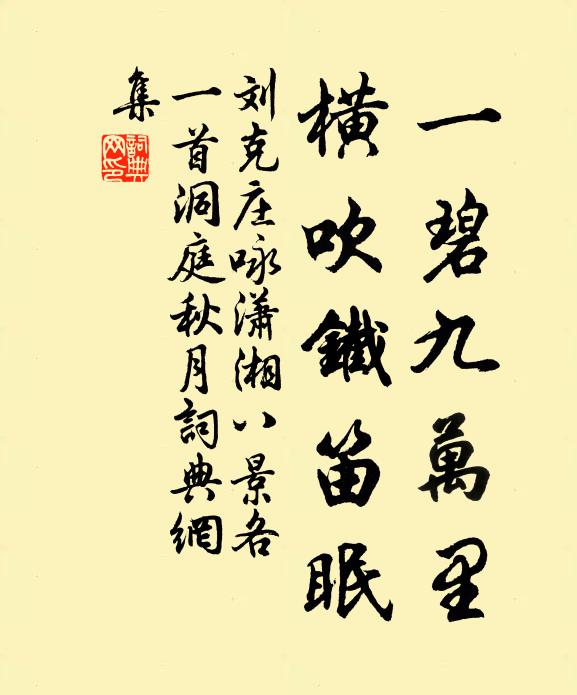 一碧九萬里
橫吹鐵笛眠
刘克庄咏瀟湘八景各
一首洞庭秋月詞典網
集
詞典网印